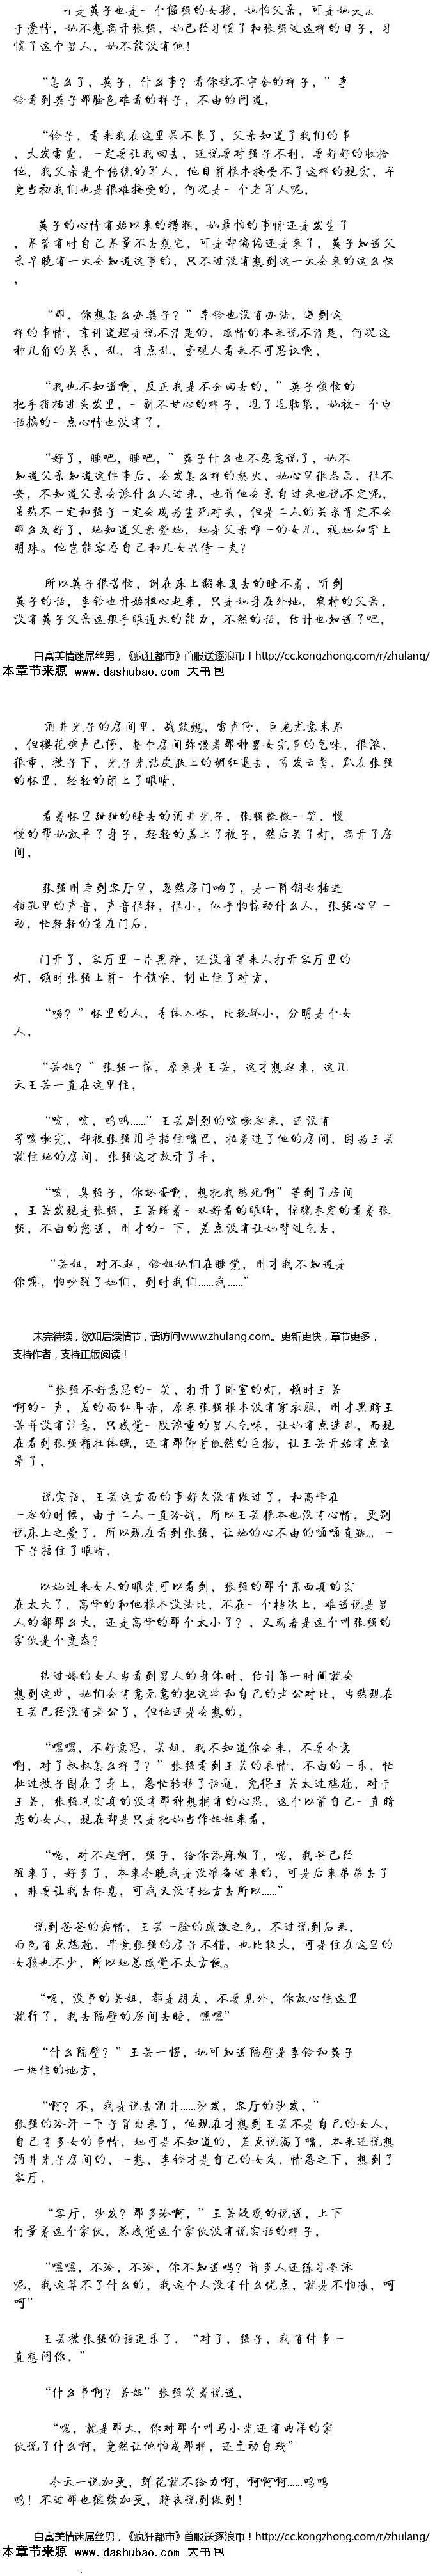 可是英子也是一个倔强的女孩，她怕父亲，可是她更忠
于爱情，她不想离开张强，她已经习惯了和张强过这样的日子，习
惯了这个男人，她不能没有他！
“怎么了，英子，什么事？看你魂不守舍的样子，”李
铃看到英子那脸色难看的样子，不由的问道，
“铃子，看来我在这里呆不长了，父亲知道了我们的事
，大发雷霆，一定要让我回去，还说要对强子不利，要好好的收拾
他，我父亲是个传统的军人，他目前根本接受不了这样的现实，毕
竟当初我们也是很难接受的，何况是一个老军人呢，
英子的心情有始以来的糟糕，她最怕的事情还是发生了
，尽管有时自己尽量不去想它，可是却偏偏还是来了，英子知道父
亲早晚有一天会知道这事的，只不过没有想到这一天会来的这么快
，
“那，你想怎么办英子？”李铃也没有办法，遇到这
样的事情，靠讲道理是说不清楚的，感情的本来说不清楚，何况这
种几角的关系，乱，有点乱，旁观人看来不可思议啊，
“我也不知道啊，反正我是不会回去的，”英子懊恼的
把手指插进头发里，一副不甘心的样子，甩了甩脑袋，她被一个电
话搞的一点心情也没有了，
“好了，睡吧，睡吧，”英子什么也不愿意说了，她不
知道父亲知道这件事后，会发怎么样的怒火，她心里很忐忑，很不
安，不知道父亲会派什么人过来，也许他会亲自过来也说不定呢，
虽然不一定和强子一定会成为生死对头，但是二人的关系肯定不会
那么友好了，她知道父亲爱她，她是父亲唯一的女儿，视她如掌上
明珠。他岂能容忍自己和几女共侍一夫？
所以英子很苦恼，倒在床上翻来复去的睡不着，听到
英子的话，李铃也开始担心起来，只是她身在外地，农村的父亲，
没有英子父亲这般手眼通天的能力，不然的话，估计也知道了吧，
白富美情迷屌丝男，《疯狂都市》首服送逐浪币！http://cc.kongzhong.com/r/zhulang/
本章节来源 www.dashubao.com 大书包
酒井光子的房间里，战鼓熄，雷声停，巨龙尤意未尽
，但樱花歌声已停，整个房间弥漫着那种男女完事的气味，很浓，
很重，被子下，光子光洁皮肤上的媚红退去，秀发云鬓，趴在张强
的怀里，轻轻的闭上了眼睛，
看着怀里甜甜的睡去的酒井光子，张强微微一笑，慢
慢的帮她放平了身子，轻轻的盖上了被子，然后关了灯，离开了房
间，
张强刚走到客厅里，忽然房门响了，是一阵钥匙插进
锁孔里的声音，声音很轻，很小，似乎怕惊动什么人，张强心里一
动，忙轻轻的靠在门后，
门开了，客厅里一片黑暗，还没有等来人打开客厅里的
灯，顿时张强上前一个锁喉，制止住了对方，
“咦？”怀里的人，香体入怀，比较娇小，分明是个女
人，
“芸姐？”张强一惊，原来是王芸，这才想起来，这几
天王芸一直在这里住，
“咳，咳，呜呜……”王芸剧烈的咳嗽起来，还没有
等咳嗽完，却被张强用手捂住嘴巴，拉着进了他的房间，因为王芸
就住她的房间，张强这才放开了手，
“咳，臭强子，你坏蛋啊，想把我憋死啊”等到了房间
，王芸发现是张强，王芸瞪着一双好看的眼睛，惊魂未定的看着张
强，不由的怒道，刚才的一下，差点没有让她背过气去，
“芸姐，对不起，铃姐她们在睡觉，刚才我不知道是
你嘛，怕吵醒了她们，到时我们……我……”
未完待续，欲知后续情节，请访问www.zhulang.com。更新更快，章节更多，
支持作者，支持正版阅读！
“张强不好意思的一笑，打开了卧室的灯，顿时王芸
啊的一声，羞的面红耳赤，原来张强根本没有穿衣服，刚才黑暗王
芸并没有注意，只感觉一股浓重的男人气味，让她有点迷乱，而现
在看到张强精壮体魄，还有那仰首傲然的巨物，让王芸开始有点玄
晕了，
说实话，王芸这方面的事好久没有做过了，和高峰在
一起的时候，由于二人一直冷战，所以王芸根本也没有心情，更别
说床上之爱了，所以现在看到张强，让她的心不由的嗵嗵直跳。一
下子捂住了眼睛，
以她过来女人的眼光可以看到，张强的那个东西真的实
在太大了，高峰的和他根本没法比，不在一个档次上，难道说是男
人的都那么大，还是高峰的那个太小了？，又或者是这个叫张强的
家伙是个变态？
结过婚的女人当看到男人的身体时，估计第一时间就会
想到这些，她们会有意无意的把这些和自己的老公对比，当然现在
王芸已经没有老公了，但他还是会想的，
“嘿嘿，不好意思，芸姐，我不知道你会来，不要介意
啊，对了叔叔怎么样了？”张强看到王芸的表情，不由的一乐，忙
扯过被子围在了身上，急忙转移了话题，免得王芸太过尴尬，对于
王芸，张强其实真的没有那种想拥有的心思，这个以前自己一直暗
恋的女人，现在却是只是把她当作姐姐来看，
“嗯，对不起啊，强子，给你添麻烦了，嗯，我爸已经
醒来了，好多了，本来今晚我是没准备过来的，可是后来弟弟去了
，非要让我去休息，可我又没有地方去所以……”
说到爸爸的病情，王芸一脸的感激之色，不过说到后来，
面色有点尴尬，毕竟张强的房子不错，也比较大，可是住在这里的
女孩也不少，所以她总感觉不太方便。
“嗯，没事的芸姐，都是朋友，不要见外，你放心住这里
就行了，我去隔壁的房间去睡，嘿嘿”
“什么隔壁？”王芸一愣，她可知道隔壁是李铃和英子
一块住的地方，
“啊？不，我是说去酒井……沙发，客厅的沙发，”
张强的冷汗一下子冒出来了，他现在才想到王芸不是自己的女人，
自己有多女的事情，她可是不知道的，差点说漏了嘴，本来还说想
酒井光子房间的，一想，李铃才是自己的女友，情急之下，想到了
客厅，
“客厅，沙发？那多冷啊，”王芸疑惑的说道，上下
打量着这个家伙，总感觉这个家伙没有说实话的样子，
“嘿嘿，不冷，不冷，你不知道吗？许多人还练习冬泳
呢，我这算不了什么的，我这个人没有什么优点，就是不怕冻，呵
呵”
王芸被张强的话逗乐了，“对了，强子，我有件事一
直想问你，”
“什么事啊？芸姐”张强笑着说道，
“嗯，就是那天，你对那个叫马小光还有曲洋的家
伙说了什么啊，竟然让他怕成那样，还主动自残”
今天一说加更，鲜花就不给力啊，啊啊啊……呜呜
呜！不过那也继续加更，暗夜说到做到！
白富美情迷屌丝男，《疯狂都市》首服送逐浪币！http://cc.kongzhong.com/r/zhulang/
本章节来源 www.dashubao.com 大书包